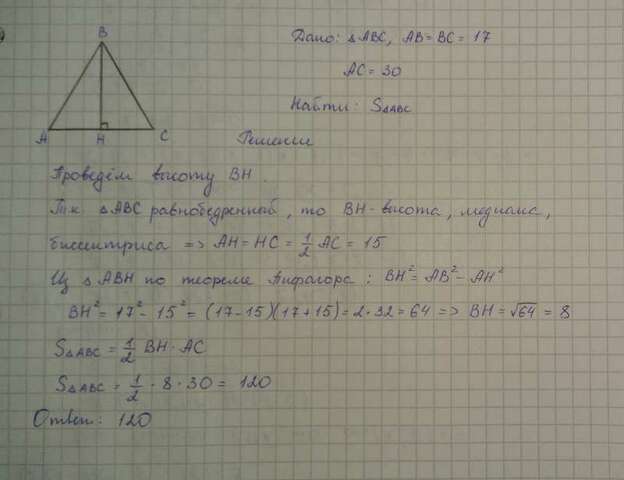 B
A H C
Дано: △ABC, AB = BC = 17
AC = 30
Найти: S△ABC
Решение
Проведём высоту BH.
Т.к. △ABC равнобедренный, то BH - высота, медиана,
биссектриса => AH = HC = 1/2 AC = 15
Из △ABH по теореме Пифагора: BH² = AB² - AH²
BH² = 17² - 15² = (17 - 15)(17 + 15) = 2 · 32 = 64 => BH = √64 = 8
S△ABC = 1/2 BH · AC
S△ABC = 1/2 · 8 · 30 = 120
Ответ: 120